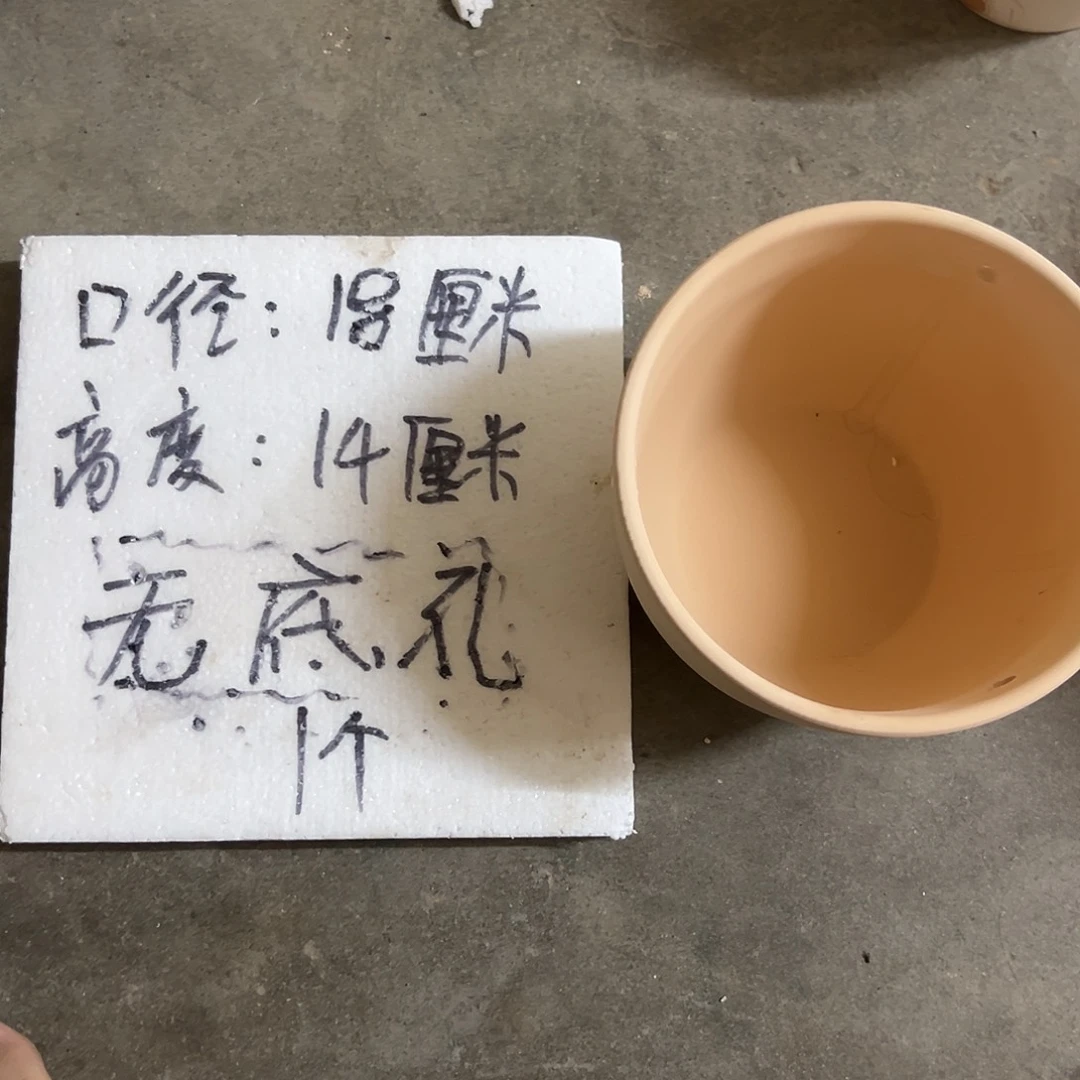 口径：18厘米
高度：14厘米
无底孔
1个